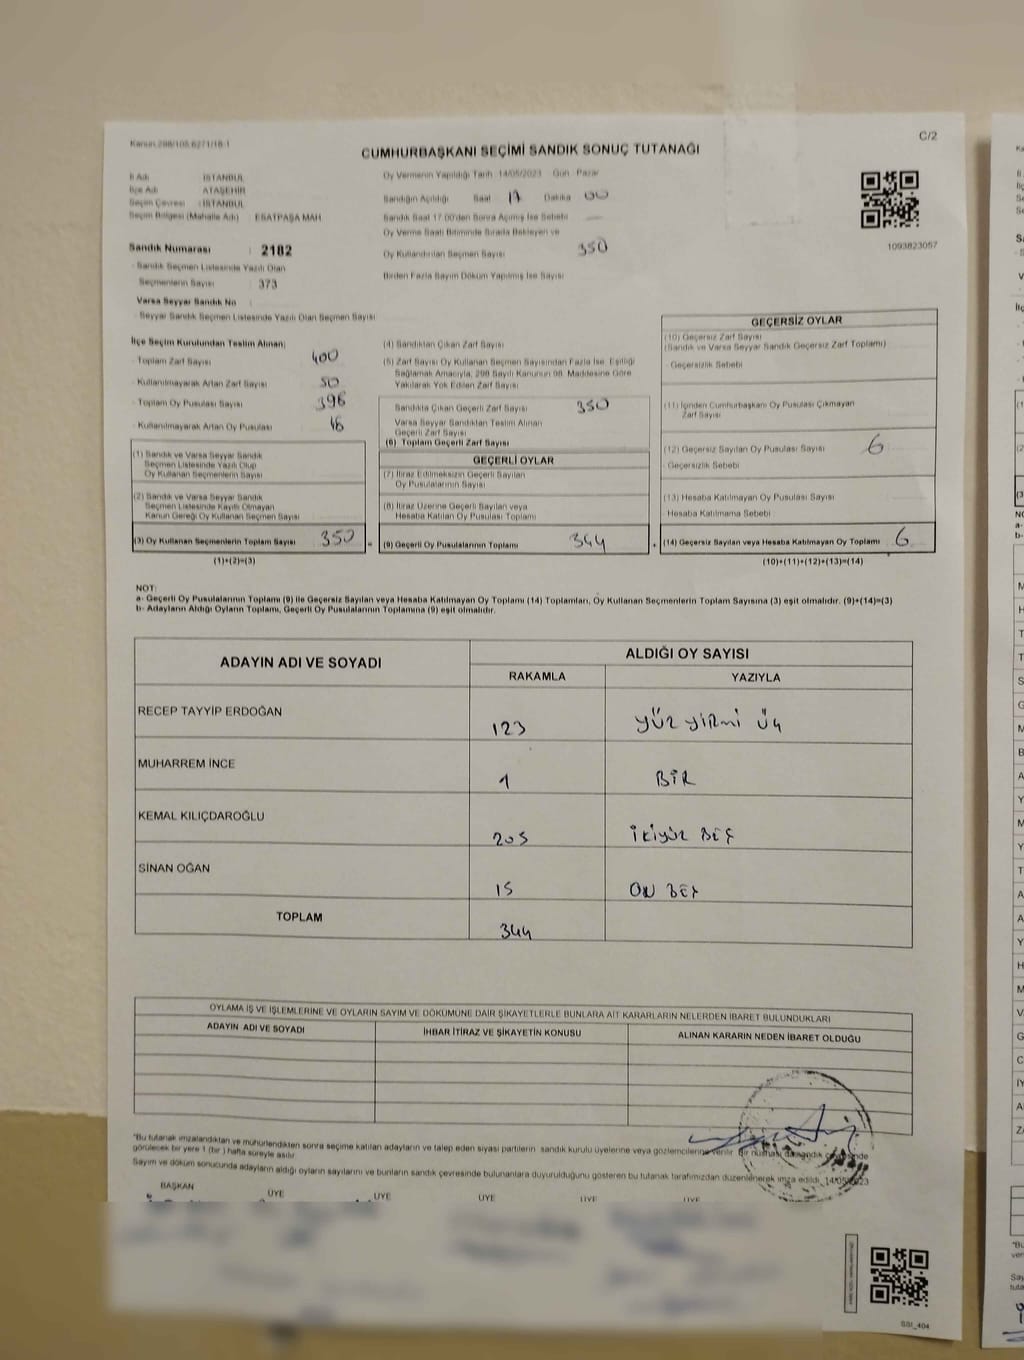 C/2
CUMHURBAŞKANI SEÇİMİ SANDIK SONUÇ TUTANAĞI
İl Adı : İSTANBUL
İlçe Adı : ATAŞEHİR
Seçim Çevresi : İSTANBUL
Seçim Bölgesi (Mahalle Adı) : ESATPAŞA MAH
Oy Vermenin Yapıldığı Tarih 14/05/2023 Gün: Pazar
Sandığın Açıldığı Saat 17 Dakika 00
Sandık Saat 17.00'den Sonra Açılmış İse Sebebi
Oy Verme Saati Bitiminde Sırada Bekleyen ve
Oy Kullandırılan Seçmen Sayısı 350
Birden Fazla Sayım Döküm Yapılmış İse Sayısı
1093823057
Sandık Numarası : 2182
- Sandık Seçmen Listesinde Yazılı Olan
Seçmenlerin Sayısı : 373
Varsa Seyyar Sandık No
- Seyyar Sandık Seçmen Listesinde Yazılı Olan Seçmen Sayısı:
İlçe Seçim Kurulundan Teslim Alınan;
- Toplam Zarf Sayısı 400
- Kullanılmayarak Artan Zarf Sayısı 50
- Toplam Oy Pusulası Sayısı 396
- Kullanılmayarak Artan Oy Pusulası
(1) Sandık ve Varsa Seyyar Sandık
Seçmen Listesinde Yazılı Olup
Oy Kullanan Seçmenlerin Sayısı
(2) Sandık ve Varsa Seyyar Sandık
Seçmen Listesinde Kayıtlı Olmayan
Kanun Gereği Oy Kullanan Seçmen Sayısı
(3) Oy Kullanan Seçmenlerin Toplam Sayısı 350
(1)+(2)=(3)
(4) Sandıktan Çıkan Zarf Sayısı
(5) Zarf Sayısı Oy Kullanan Seçmen Sayısından Fazla İse, Eşitliği
Sağlamak Amacıyla, 298 Sayılı Kanunun 98. Maddesine Göre
Yakılarak Yok Edilen Zarf Sayısı
Sandıkta Çıkan Geçerli Zarf Sayısı 350
Varsa Seyyar Sandıktan Teslim Alınan
Geçerli Zarf Sayısı
(6) Toplam Geçerli Zarf Sayısı
GEÇERLİ OYLAR
(7) İtiraz Edilmeksizin Geçerli Sayılan
Oy Pusulalarının Sayısı
(8) İtiraz Üzerine Geçerli Sayılan veya
Hesaba Katılan Oy Pusulası Toplamı
(9) Geçerli Oy Pusulalarının Toplamı 344
GEÇERSİZ OYLAR
(10) Geçersiz Zarf Sayısı
(Sandık ve Varsa Seyyar Sandık Geçersiz Zarf Toplamı)
- Geçersizlik Sebebi
(11) İçinden Cumhurbaşkanı Oy Pusulası Çıkmayan
Zarf Sayısı
(12) Geçersiz Sayılan Oy Pusulası Sayısı 6
- Geçersizlik Sebebi
(13) Hesaba Katılmayan Oy Pusulası Sayısı
Hesaba Katılmama Sebebi
(14) Geçersiz Sayılan veya Hesaba Katılmayan Oy Toplamı 6
(10)+(11)+(12)+(13)=(14)
NOT:
a- Geçerli Oy Pusulalarının Toplamı (9) ile Geçersiz Sayılan veya Hesaba Katılmayan Oy Toplamı (14) Toplamları, Oy Kullanan Seçmenlerin Toplam Sayısına (3) eşit olmalıdır. (9)+(14)=(3)
b- Adayların Aldığı Oyların Toplamı, Geçerli Oy Pusulalarının Toplamına (9) eşit olmalıdır.
ADAYIN ADI VE SOYADI
ALDIĞI OY SAYISI
RAKAMLA YAZIYLA
RECEP TAYYİP ERDOĞAN 123 YÜZ YİRMİ ÜÇ
MUHARREM İNCE 1 BİR
KEMAL KILIÇDAROĞLU 205 İKİYÜZ BEŞ
SİNAN OĞAN 15 ON BEŞ
TOPLAM 344
OYLAMA İŞ VE İŞLEMLERİNE VE OYLARIN SAYIM VE DÖKÜMÜNE DAİR ŞİKAYETLERLE BUNLARA AİT KARARLARIN NELERDEN İBARET BULUNDUKLARI
ADAYIN ADI VE SOYADI İHBAR İTİRAZ VE ŞİKAYETİN KONUSU ALINAN KARARIN NEDEN İBARET OLDUĞU
*Bu tutanak imzalandıktan ve mühürlendikten sonra seçime katılan adayların ve talep eden siyasi partilerin sandık kurulu üyelerine veya gözlemcilerine verilir. Bir nüshası da sandık çevresinde
görülecek bir yere 1 (bir) hafta süreyle asılır.
Sayım ve döküm sonucunda adayların aldığı oyların sayılarını ve bunların sandık çevresinde bulunanlara duyurulduğunu gösteren bu tutanak tarafımızdan düzenlenerek imza edildi. 14/05/2023
BAŞKAN ÜYE ÜYE ÜYE ÜYE ÜYE
SSI_404